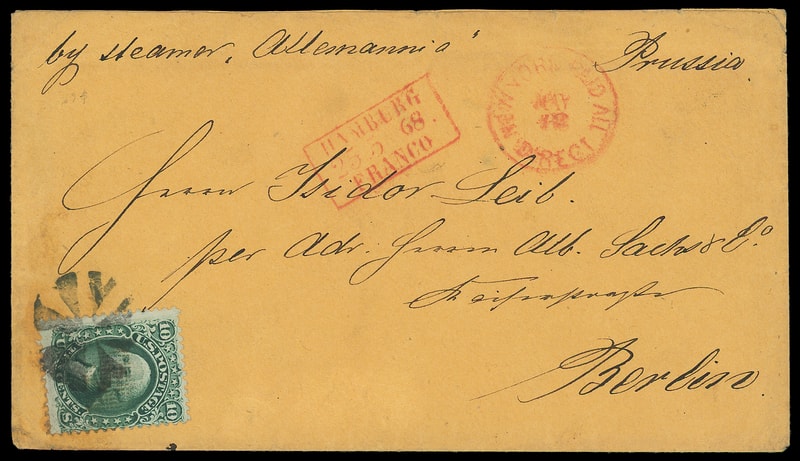 by steamer „Allemannia“ Prussia.
NEW YORK PAID ALL
MAY
12
DIRECT
HAMBURG
25 5 68
FRANCO
Herrn Isidor Leib.
per Adr. Herrn Alb. Sachs & Co.
Kaiserstraße
Berlin.
U.S. POSTAGE
10 10
CENTS